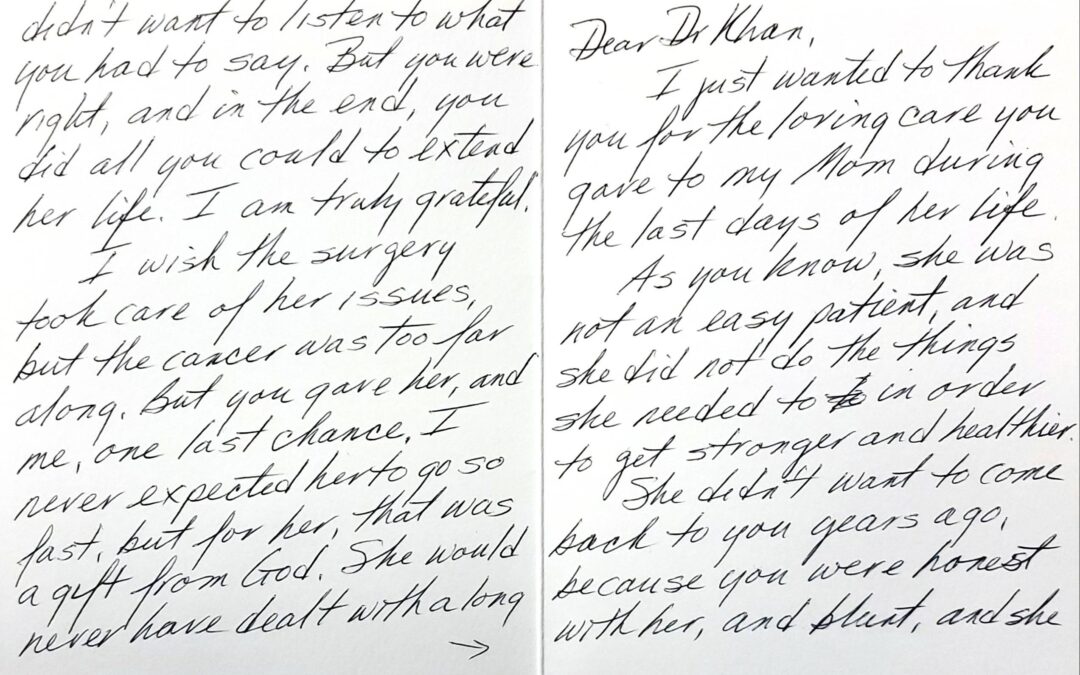 Dear Dr Khan,
I just wanted to thank
you for the loving care you
gave to my Mom during
the last days of her life.
As you know, she was
not an easy patient, and
she did not do the things
she needed to in order
to get stronger and healthier.
She didn't want to come
back to you years ago,
because you were honest
with her, and blunt, and she
didn't want to listen to what
you had to say. But you were
right, and in the end, you
did all you could to extend
her life. I am truly grateful.
I wish the surgery
took care of her issues,
but the cancer was too far
along. But you gave her, and
me, one last chance. I
never expected her to go so
fast, but for her, that was
a gift from God. She would
never have dealt with a long
→